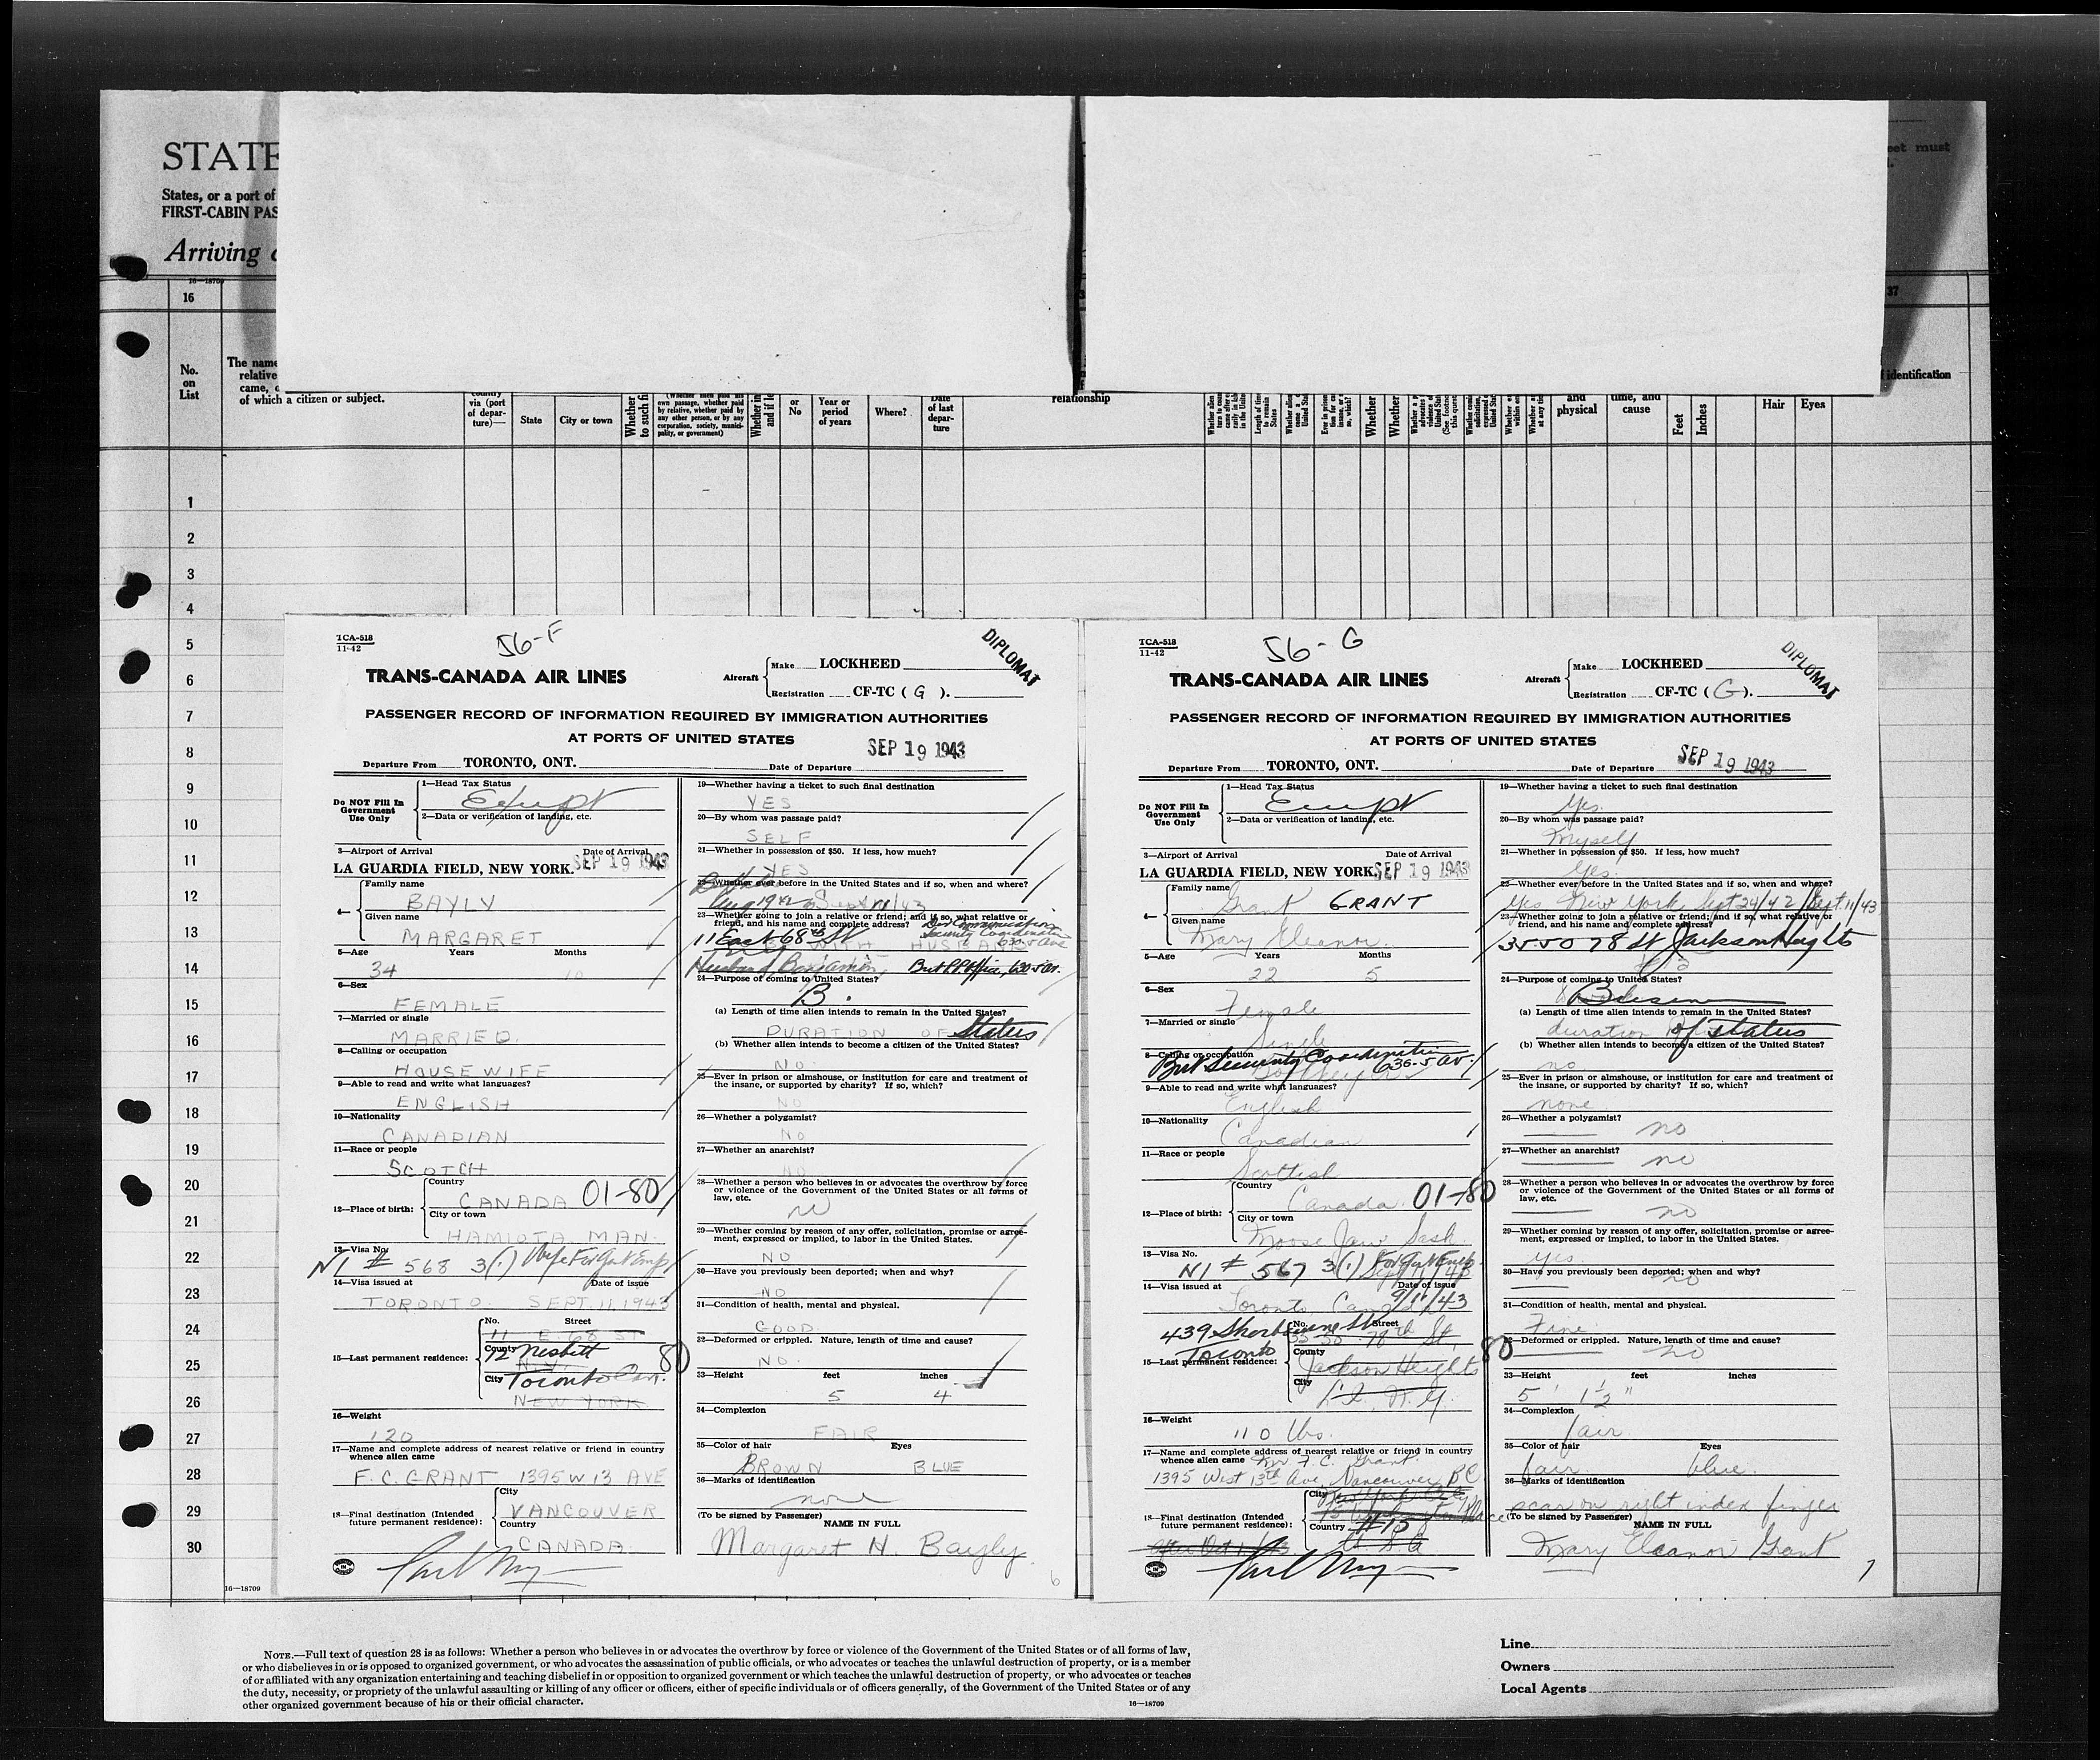 STATE
States, or a port of
FIRST-CABIN PAS
Arriving
eet must
16—18709
16
37
No.
on
List
The name
relative
came,
of which a citizen or subject.
country
via (port
of depar-
ture)—
State
City or town
Whether
to such fi
(Whether alien paid his
own passage, whether paid
by relative, whether paid by
any other person, or by any
corporation, society, munici-
pality, or government)
or
No
Year or
period
of years
Where?
Date
of last
depar-
ture
relationship
and
physical
time, and
cause
Feet
Inches
identification
Hair
Eyes
1
2
3
4
5
6
7
8
9
10
11
12
13
14
15
16
17
18
19
20
21
22
23
24
25
26
27
28
29
30
TCA-518
11-42
56-F
DIPLOMAT
TRANS-CANADA AIR LINES
Aircraft
Make LOCKHEED
Registration CF-TC ( G ).
PASSENGER RECORD OF INFORMATION REQUIRED BY IMMIGRATION AUTHORITIES
AT PORTS OF UNITED STATES
SEP 19 1943
Departure From TORONTO, ONT. Date of Departure
Do NOT Fill In
Government
Use Only
1—Head Tax Status
Exempt
2—Data or verification of landing, etc.
3—Airport of Arrival Date of Arrival
LA GUARDIA FIELD, NEW YORK. SEP 19 1943
4—
Family name
BAYLY
Given name
MARGARET
5—Age Years Months
34 10
6—Sex
FEMALE
7—Married or single
MARRIED
8—Calling or occupation
HOUSEWIFE
9—Able to read and write what languages?
ENGLISH
10—Nationality
CANADIAN
11—Race or people
SCOTCH
12—Place of birth:
Country
CANADA 01-80
City or town
HAMIOTA MAN.
13—Visa No.
N1 # 568 3(1) Wife For Gvt Emp
14—Visa issued at Date of issue
TORONTO. SEPT. 11 1943
15—Last permanent residence:
No. Street
11 E. 68 ST
County
12 Nesbitt
N.Y. 80
City Toronto Can.
NEW YORK
16—Weight
120
17—Name and complete address of nearest relative or friend in country
whence alien came
F. C. GRANT 1395 W 13 AVE
18—Final destination (Intended
future permanent residence):
City
VANCOUVER
Country
CANADA
19—Whether having a ticket to such final destination
YES
20—By whom was passage paid?
SELF
21—Whether in possession of $50. If less, how much?
YES
22—Whether ever before in the United States and if so, when and where?
Aug 1942 to Sept 11/43
23—Whether going to join a relative or friend; and if so, what relative or
friend, and his name and complete address?
Dir Communications
Security Coordination
630-5 Ave
11 East 68th St
WITH HUSBAND
Husband Benjamin, Brit P.P. Office, 630-5 Av.
24—Purpose of coming to United States?
B.
(a) Length of time alien intends to remain in the United States?
DURATION OF Status
(b) Whether alien intends to become a citizen of the United States?
NO
25—Ever in prison or almshouse, or institution for care and treatment of
the insane, or supported by charity? If so, which?
NO
26—Whether a polygamist?
NO
27—Whether an anarchist?
NO
28—Whether a person who believes in or advocates the overthrow by force
or violence of the Government of the United States or all forms of
law, etc.
29—Whether coming by reason of any offer, solicitation, promise or agree-
ment, expressed or implied, to labor in the United States.
NO
30—Have you previously been deported; when and why?
NO
31—Condition of health, mental and physical.
GOOD
32—Deformed or crippled. Nature, length of time and cause?
NO.
33—Height feet inches
5 4
34—Complexion
FAIR
35—Color of hair Eyes
BROWN BLUE
36—Marks of identification
none
(To be signed by Passenger)
NAME IN FULL
Margaret H. Bayly
6
TCA-518
11-42
56-G
DIPLOMAT
TRANS-CANADA AIR LINES
Aircraft
Make LOCKHEED
Registration CF-TC ( G ).
PASSENGER RECORD OF INFORMATION REQUIRED BY IMMIGRATION AUTHORITIES
AT PORTS OF UNITED STATES
SEP 19 1943
Departure From TORONTO, ONT. Date of Departure
Do NOT Fill In
Government
Use Only
1—Head Tax Status
Exempt
2—Data or verification of landing, etc.
3—Airport of Arrival Date of Arrival
LA GUARDIA FIELD, NEW YORK. SEP 19 1943
4—
Family name
Grant GRANT
Given name
Mary Eleanor.
5—Age Years Months
22 5
6—Sex
Female
7—Married or single
Single
8—Calling or occupation
Brit Security Coordination
630-5 Av.
9—Able to read and write what languages?
English
10—Nationality
Canadian
11—Race or people
Scottish
12—Place of birth:
Country
Canada. 01-80
City or town
Moose Jaw Sask.
13—Visa No.
N1 # 567 3(1) For Gvt Emp
Sept 11/43
14—Visa issued at Date of issue
Toronto, Canada 9/11/43
15—Last permanent residence:
No. Street
439 Sherbourne St
35-50 78th St,
Toronto
County
Jackson Heights
80
City
L.I. N.Y.
16—Weight
110 lbs.
17—Name and complete address of nearest relative or friend in country
whence alien came Mr. F. C. Grant.
1395 West 13th Ave, Vancouver BC
18—Final destination (Intended
future permanent residence):
City
New York City
Country #15
U S A
19—Whether having a ticket to such final destination
Yes.
20—By whom was passage paid?
Myself
21—Whether in possession of $50. If less, how much?
Yes.
22—Whether ever before in the United States and if so, when and where?
Yes New York, Sept 24/42 / Sept. 11/43
23—Whether going to join a relative or friend; and if so, what relative or
friend, and his name and complete address?
3550 78 St Jackson Heights
24—Purpose of coming to United States?
(a) Length of time alien intends to remain in the United States?
duration of status
(b) Whether alien intends to become a citizen of the United States?
no
25—Ever in prison or almshouse, or institution for care and treatment of
the insane, or supported by charity? If so, which?
none
26—Whether a polygamist?
no
27—Whether an anarchist?
no
28—Whether a person who believes in or advocates the overthrow by force
or violence of the Government of the United States or all forms of
law, etc.
no
29—Whether coming by reason of any offer, solicitation, promise or agree-
ment, expressed or implied, to labor in the United States.
yes
30—Have you previously been deported; when and why?
no
31—Condition of health, mental and physical.
Fine
32—Deformed or crippled. Nature, length of time and cause?
no
33—Height feet inches
5' 1½"
34—Complexion
fair
35—Color of hair Eyes
fair blue.
36—Marks of identification
scar on right index finger
(To be signed by Passenger)
NAME IN FULL
Mary Eleanor Grant
7
16—18709
NOTE.—Full text of question 28 is as follows: Whether a person who believes in or advocates the overthrow by force or violence of the Government of the United States or of all forms of law,
or who disbelieves in or is opposed to organized government, or who advocates the assassination of public officials, or who advocates or teaches the unlawful destruction of property, or is a member
of or affiliated with any organization entertaining and teaching disbelief in or opposition to organized government or which teaches the unlawful destruction of property, or who advocates or teaches
the duty, necessity, or propriety of the unlawful assaulting or killing of any officer or officers, either of specific individuals or of officers generally, of the Government of the United States or of any
other organized government because of his or their official character.
16—18709
Line
Owners
Local Agents